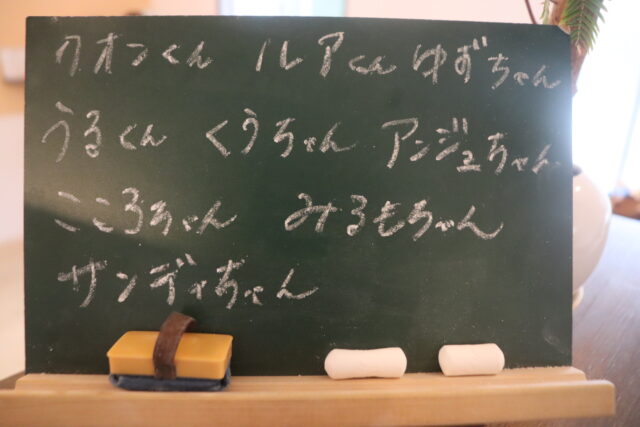 クオンくん ルアくん ゆずちゃん
うるくん くうちゃん アンジュちゃん
こころちゃん みるもちゃん
サンディちゃん